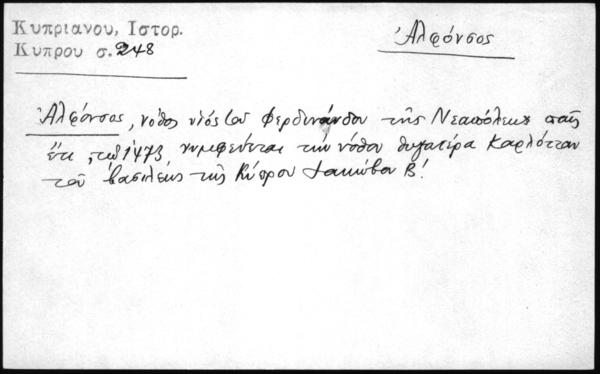 Κυπριανου, Ιστορ.
Κυπρου σ. 248
Ἀλφόνσος
Ἀλφόνσος, νόθος υἱός του Φερδινάνδου τῆς Νεαπόλεως παῖς
ἔτι, τῷ 1473, νυμφεύεται την νόθον θυγατέρα Καρλότταν
τοῦ βασιλέως τῆς Κύπρου Ἰακώβου Β!